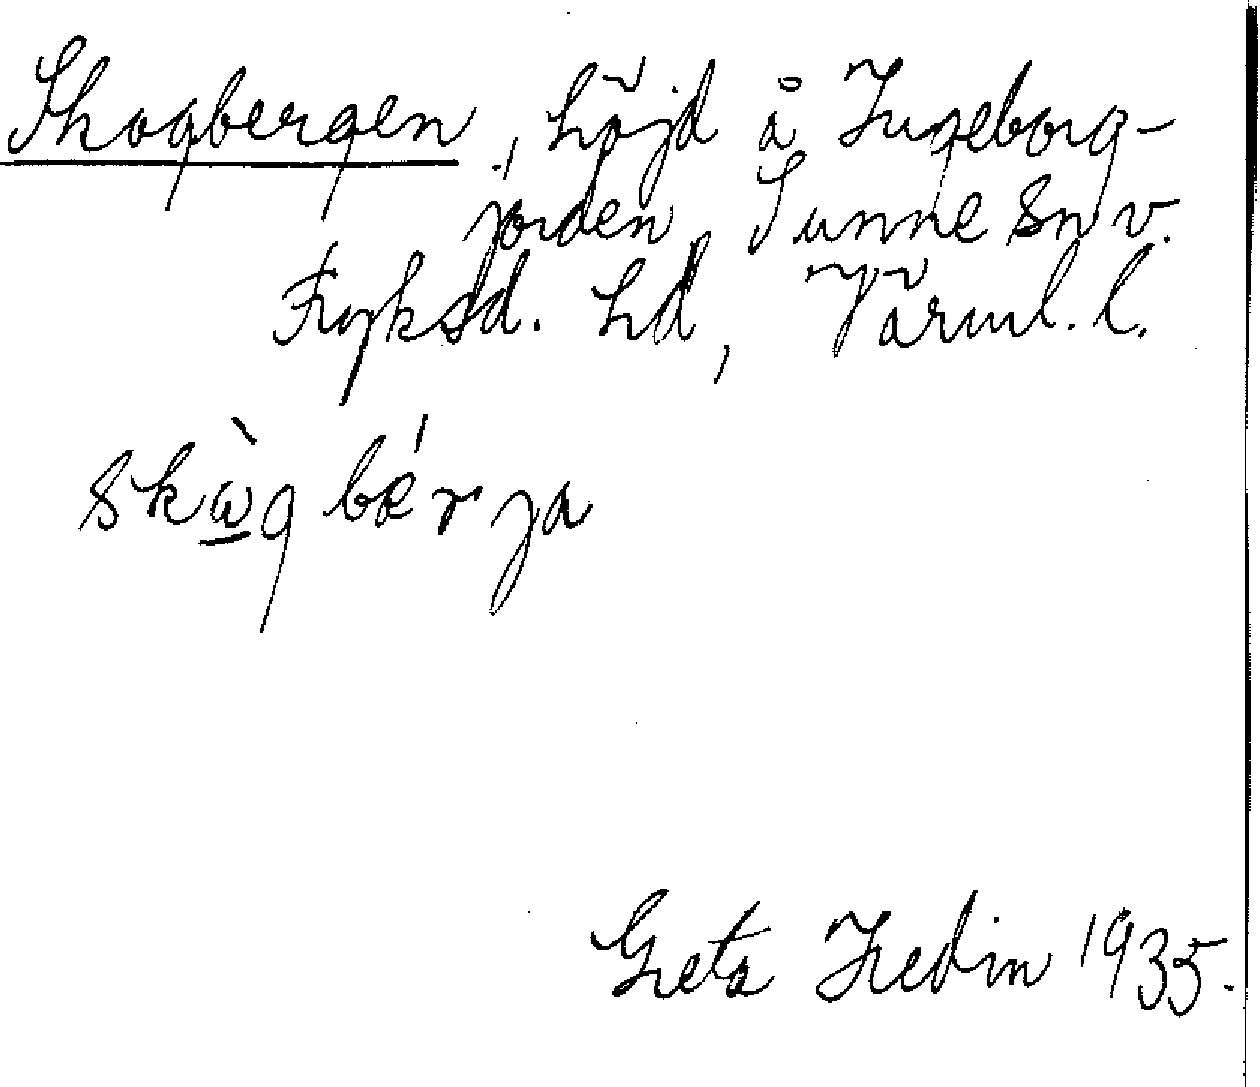 Skogbergen, höjd å Ingeborg-
jorden, Sunne sn v.
Fryksd. hd, Värml. l.
skὼ̲g bǽrja
Greta Hedin 1935.